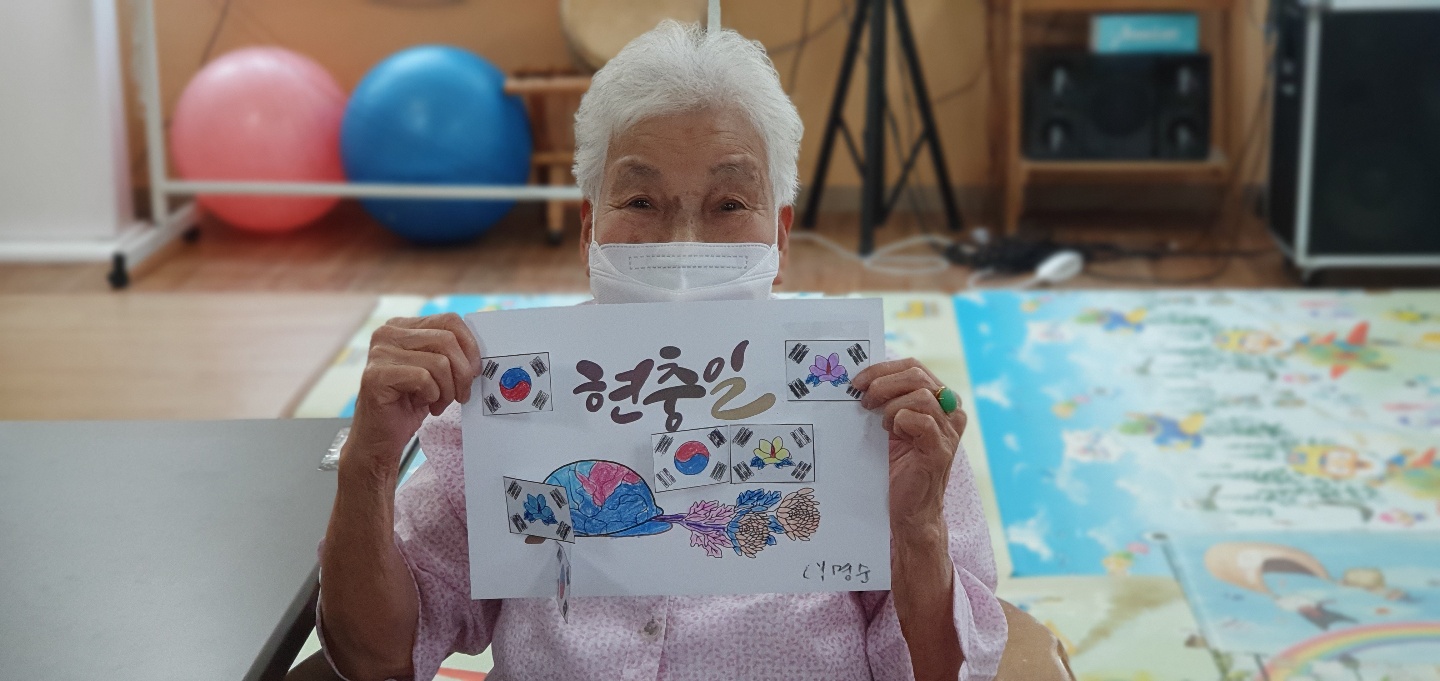 현충일
명순